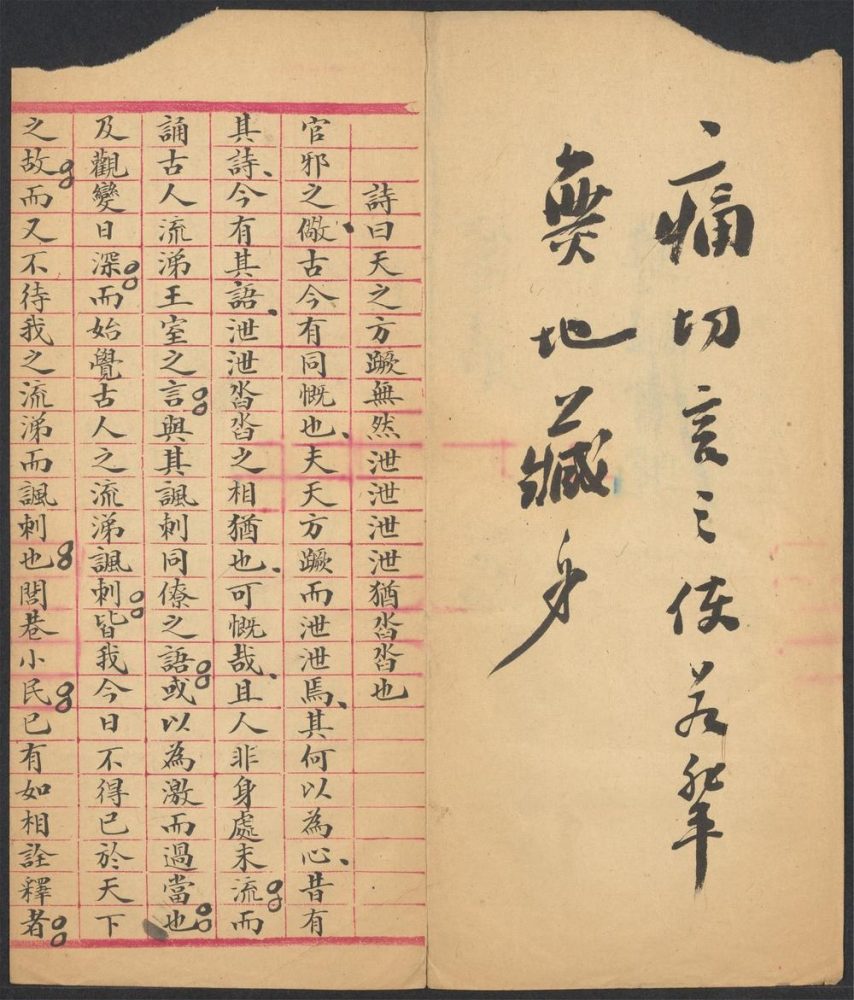 痛切言之使若輩
無地藏身
詩曰天之方蹶無然泄泄泄泄猶沓沓也
官邪之儆古今有同慨也夫天方蹶而泄泄焉其何以為心昔有
其詩今有其語泄泄沓沓之相猶也可慨哉且人非身處末流而
誦古人流涕王室之言與其諷刺同僚之語或以為激而過當也
及觀變日深而始覺古人之流涕諷刺皆我今日不得已於天下
之故而又不待我之流涕而諷刺也閭巷小民已有如相詮釋者